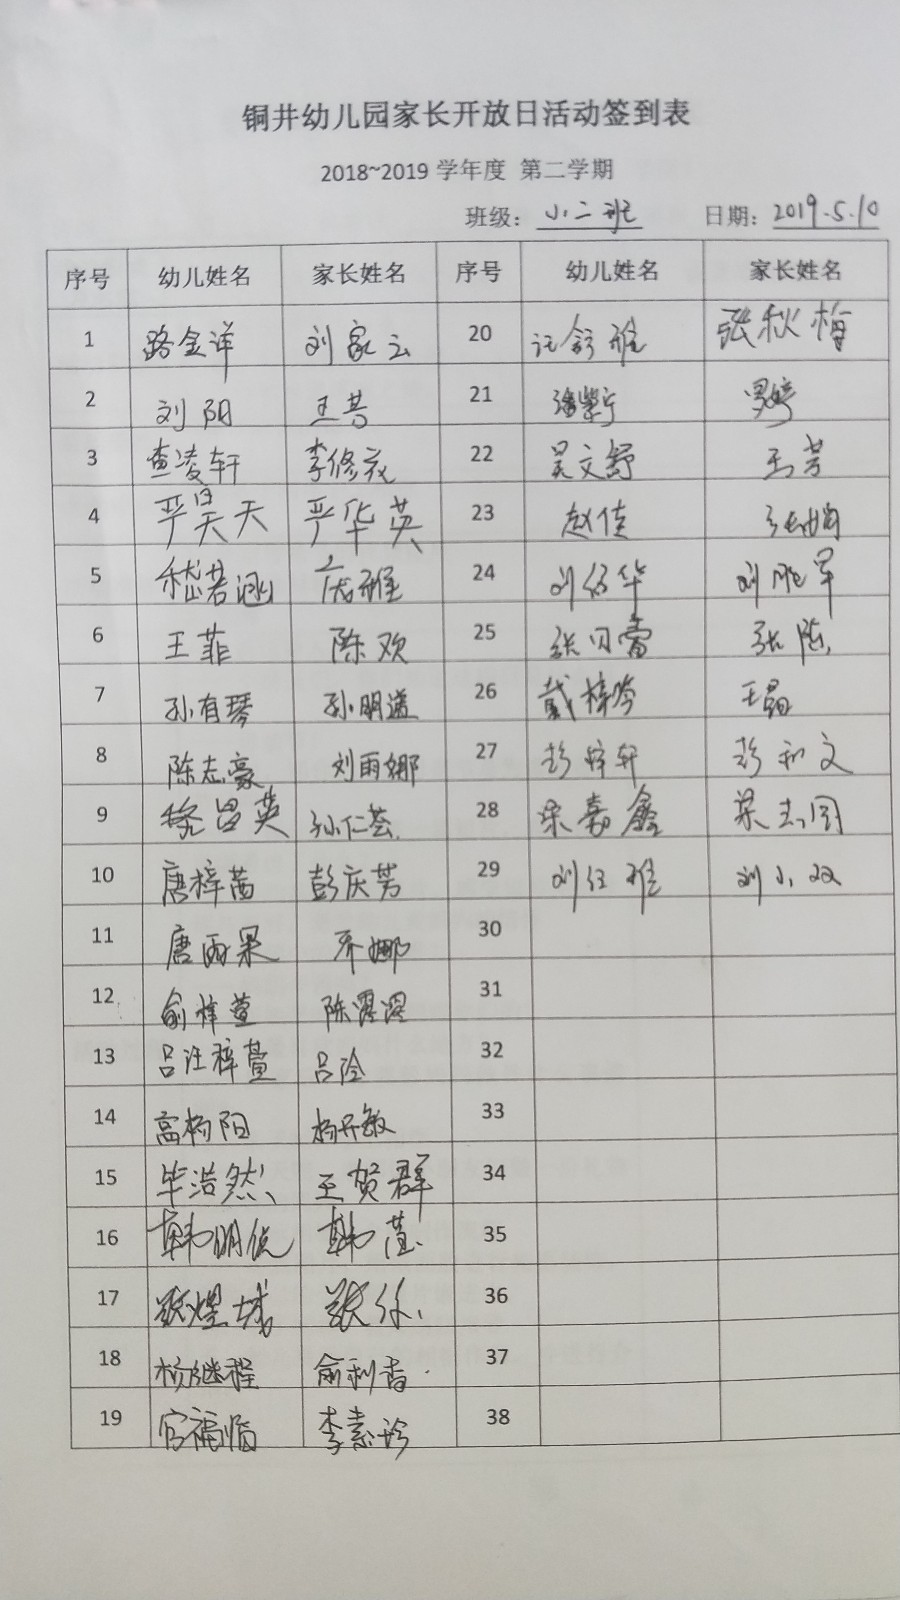 铜井幼儿园家长开放日活动签到表
2018~2019 学年度 第二学期
班级: 小二班 日期: 2019.5.10
序号 幼儿姓名 家长姓名 序号 幼儿姓名 家长姓名
1 路金洋 刘家云 20 张秋梅
2 刘阳 21
3 查凌轩 李修 22 吴文舒 王芳
4 严昊天 严华英 23 赵佳 张娟
5 嵇若涵 24 刘 华 刘 军
6 王菲 陈欢 25 张贝蕾 张陈
7 孙有琴 孙明道 26 戴梓岑 王磊
8 陈志豪 刘雨娜 27 彭梓轩 彭和文
9 昌英 孙仁荟 28 梁嘉鑫 梁志国
10 唐梓茜 彭庆芳 29 刘 雅 刘小双
11 唐雨果 乔娜 30
12 俞梓萱 陈露露 31
13 吕汪梓萱 吕 32
14 高杨阳 杨开敏 33
15 毕浩然 王贺群 34
16 韩明 韩莹 35
17 煌城 36
18 杨继程 俞利香 37
19 官福临 李素珍 38